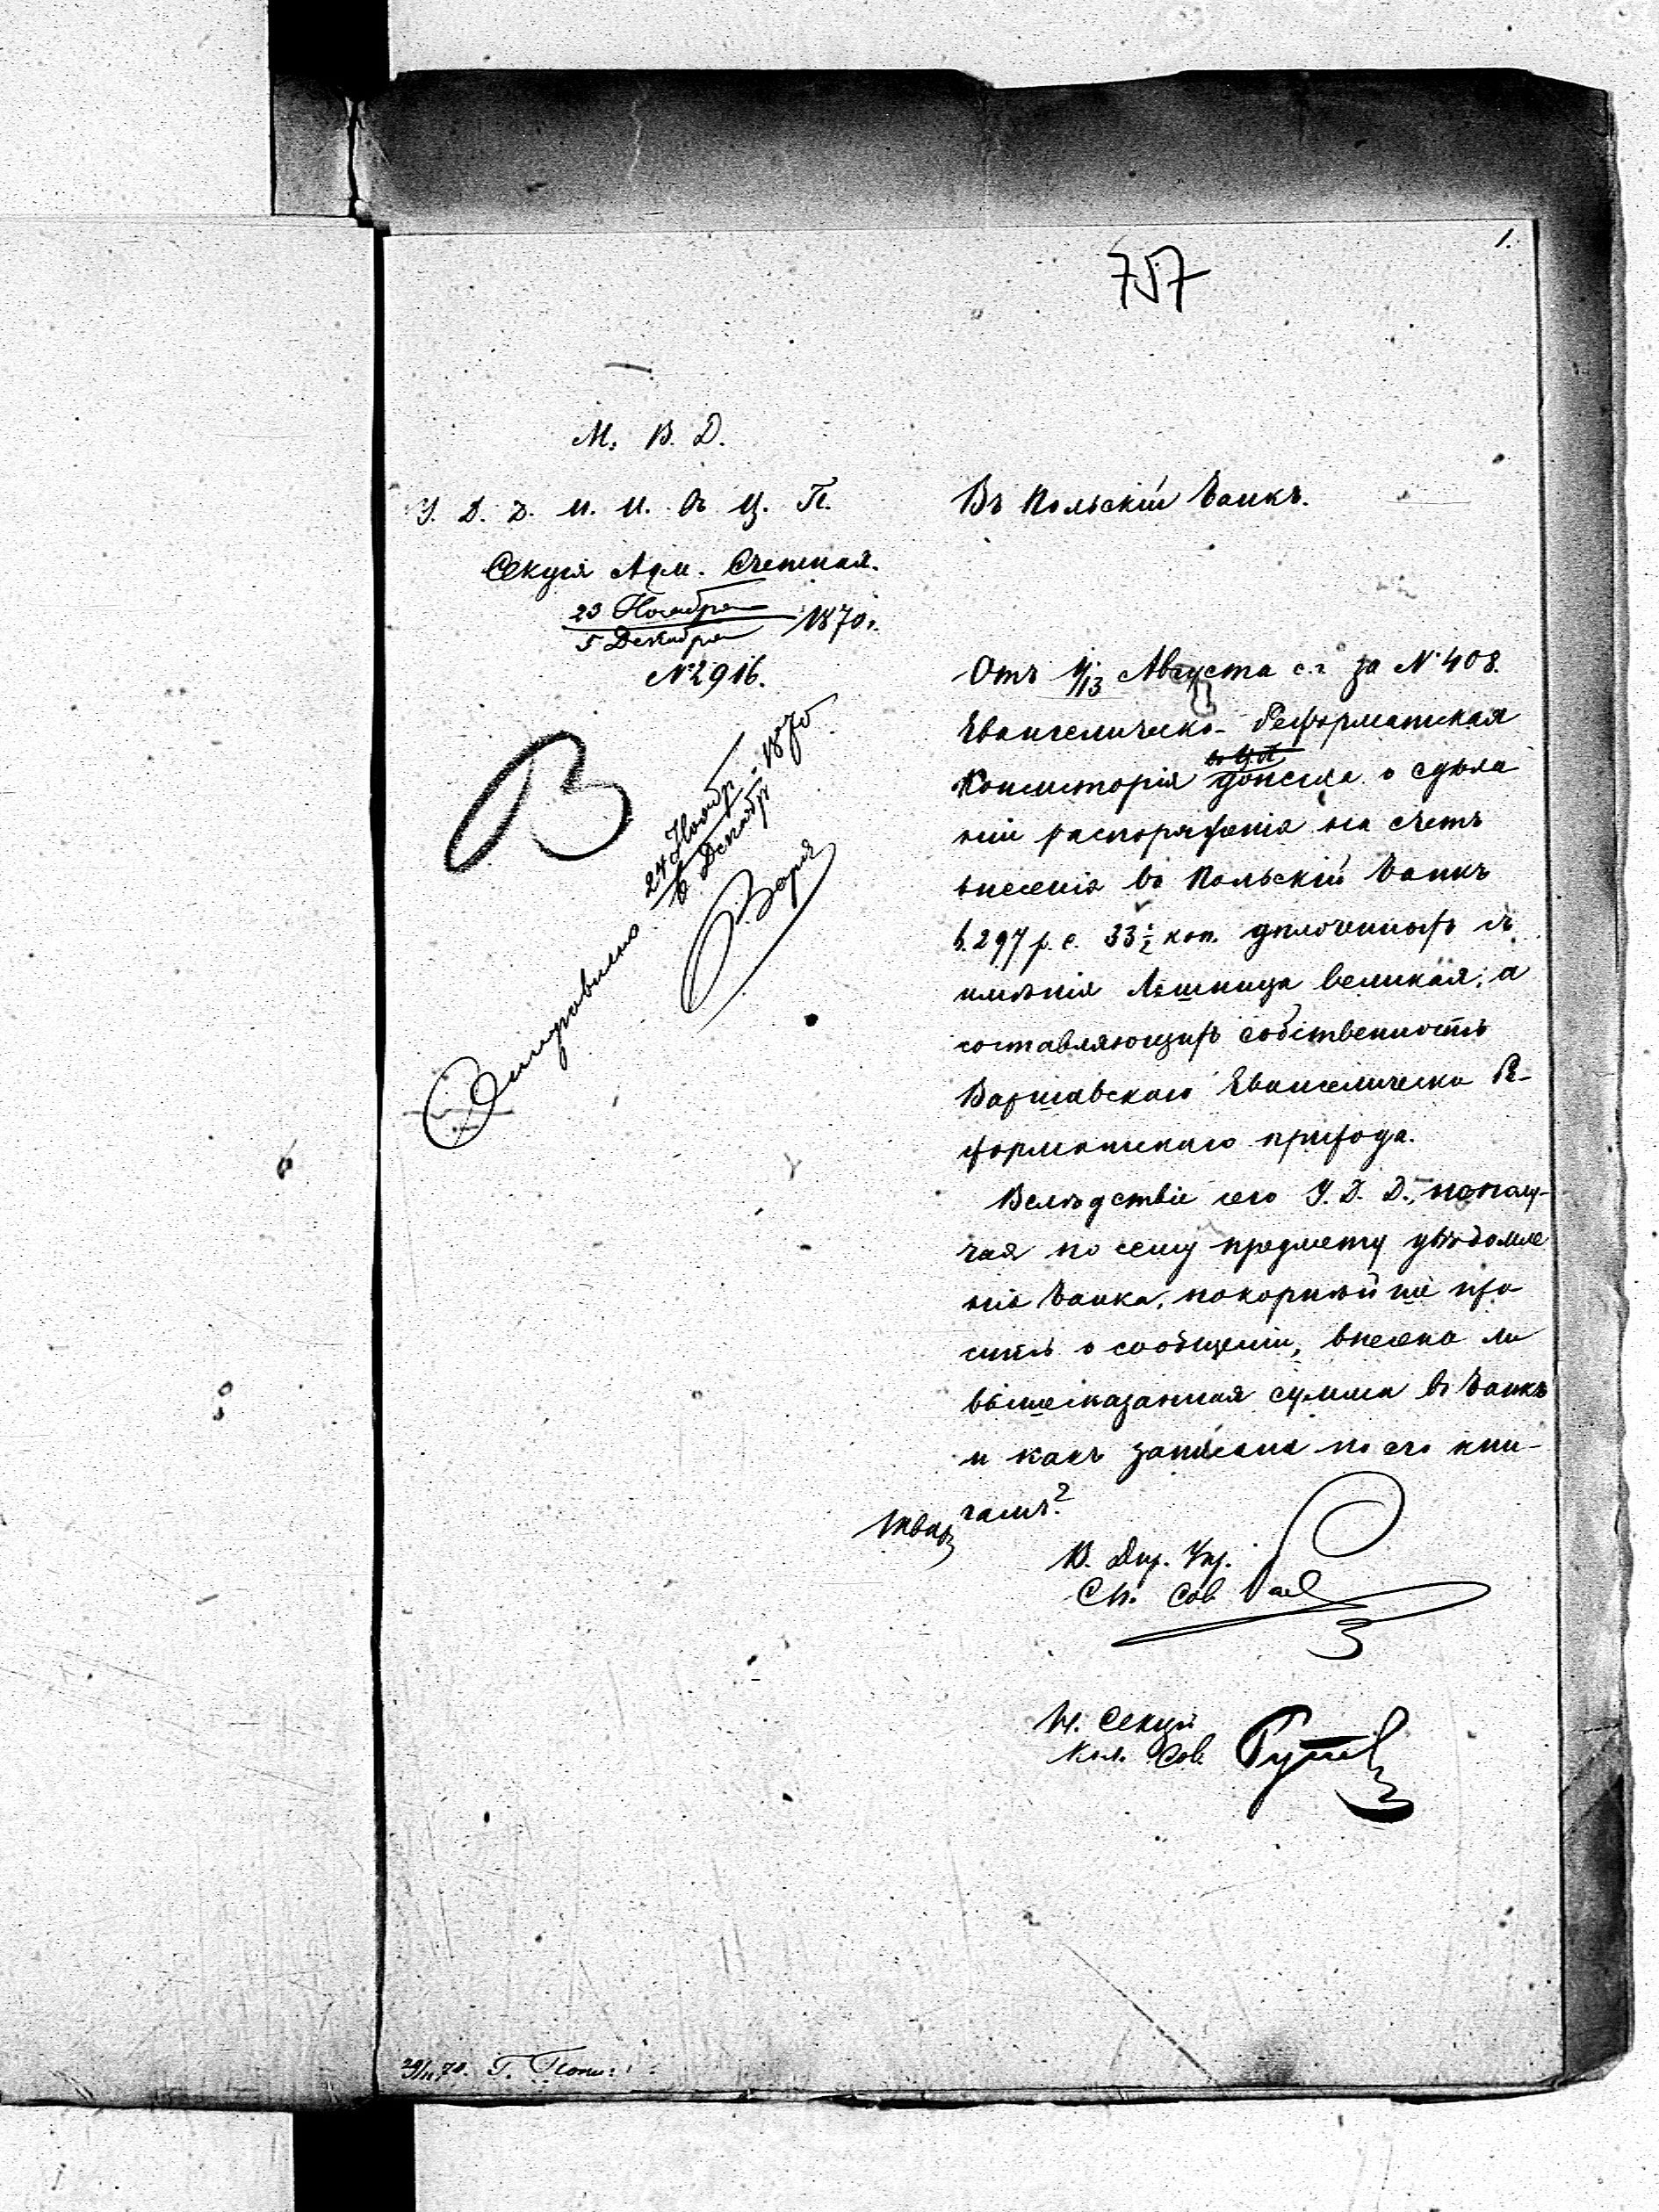 1.
757
М. В. Д.
У. Д. Д. И. И. въ Ц. П.
Секція Адм. Счетная.
23 Ноября
5 Декабря 1870 г.
№ 2916.
В
24 Ноябр
6 Декабр 1870
Въ Польскій Банкъ.
Отъ 1/13 Августа с. г. за № 408.
Евангелическо-Реформатская
Консисторія о сдѣла
ніи распоряженія на счетъ
внесенія въ Польскій Банкъ
6.297 р. с. 33 1/2 коп. уплоченныхъ съ
имѣнія Лѣшница великая, а
составляющихъ собственность
Варшавскаго Евангелическо Ре-
форматскаго прихода.
Вслѣдствіе сего У. Д. Д., не получ-
чая по сему предмету увѣдомле
нія Банка, покорнѣйше про
ситъ о сообщеніи, внесена ли
вышесказанная сумма въ Банкъ
и какъ записана по его кни-
гамъ?
В. Дир. Упр.
Ст. Сов.
Н. Секціи
Кол. Сов.